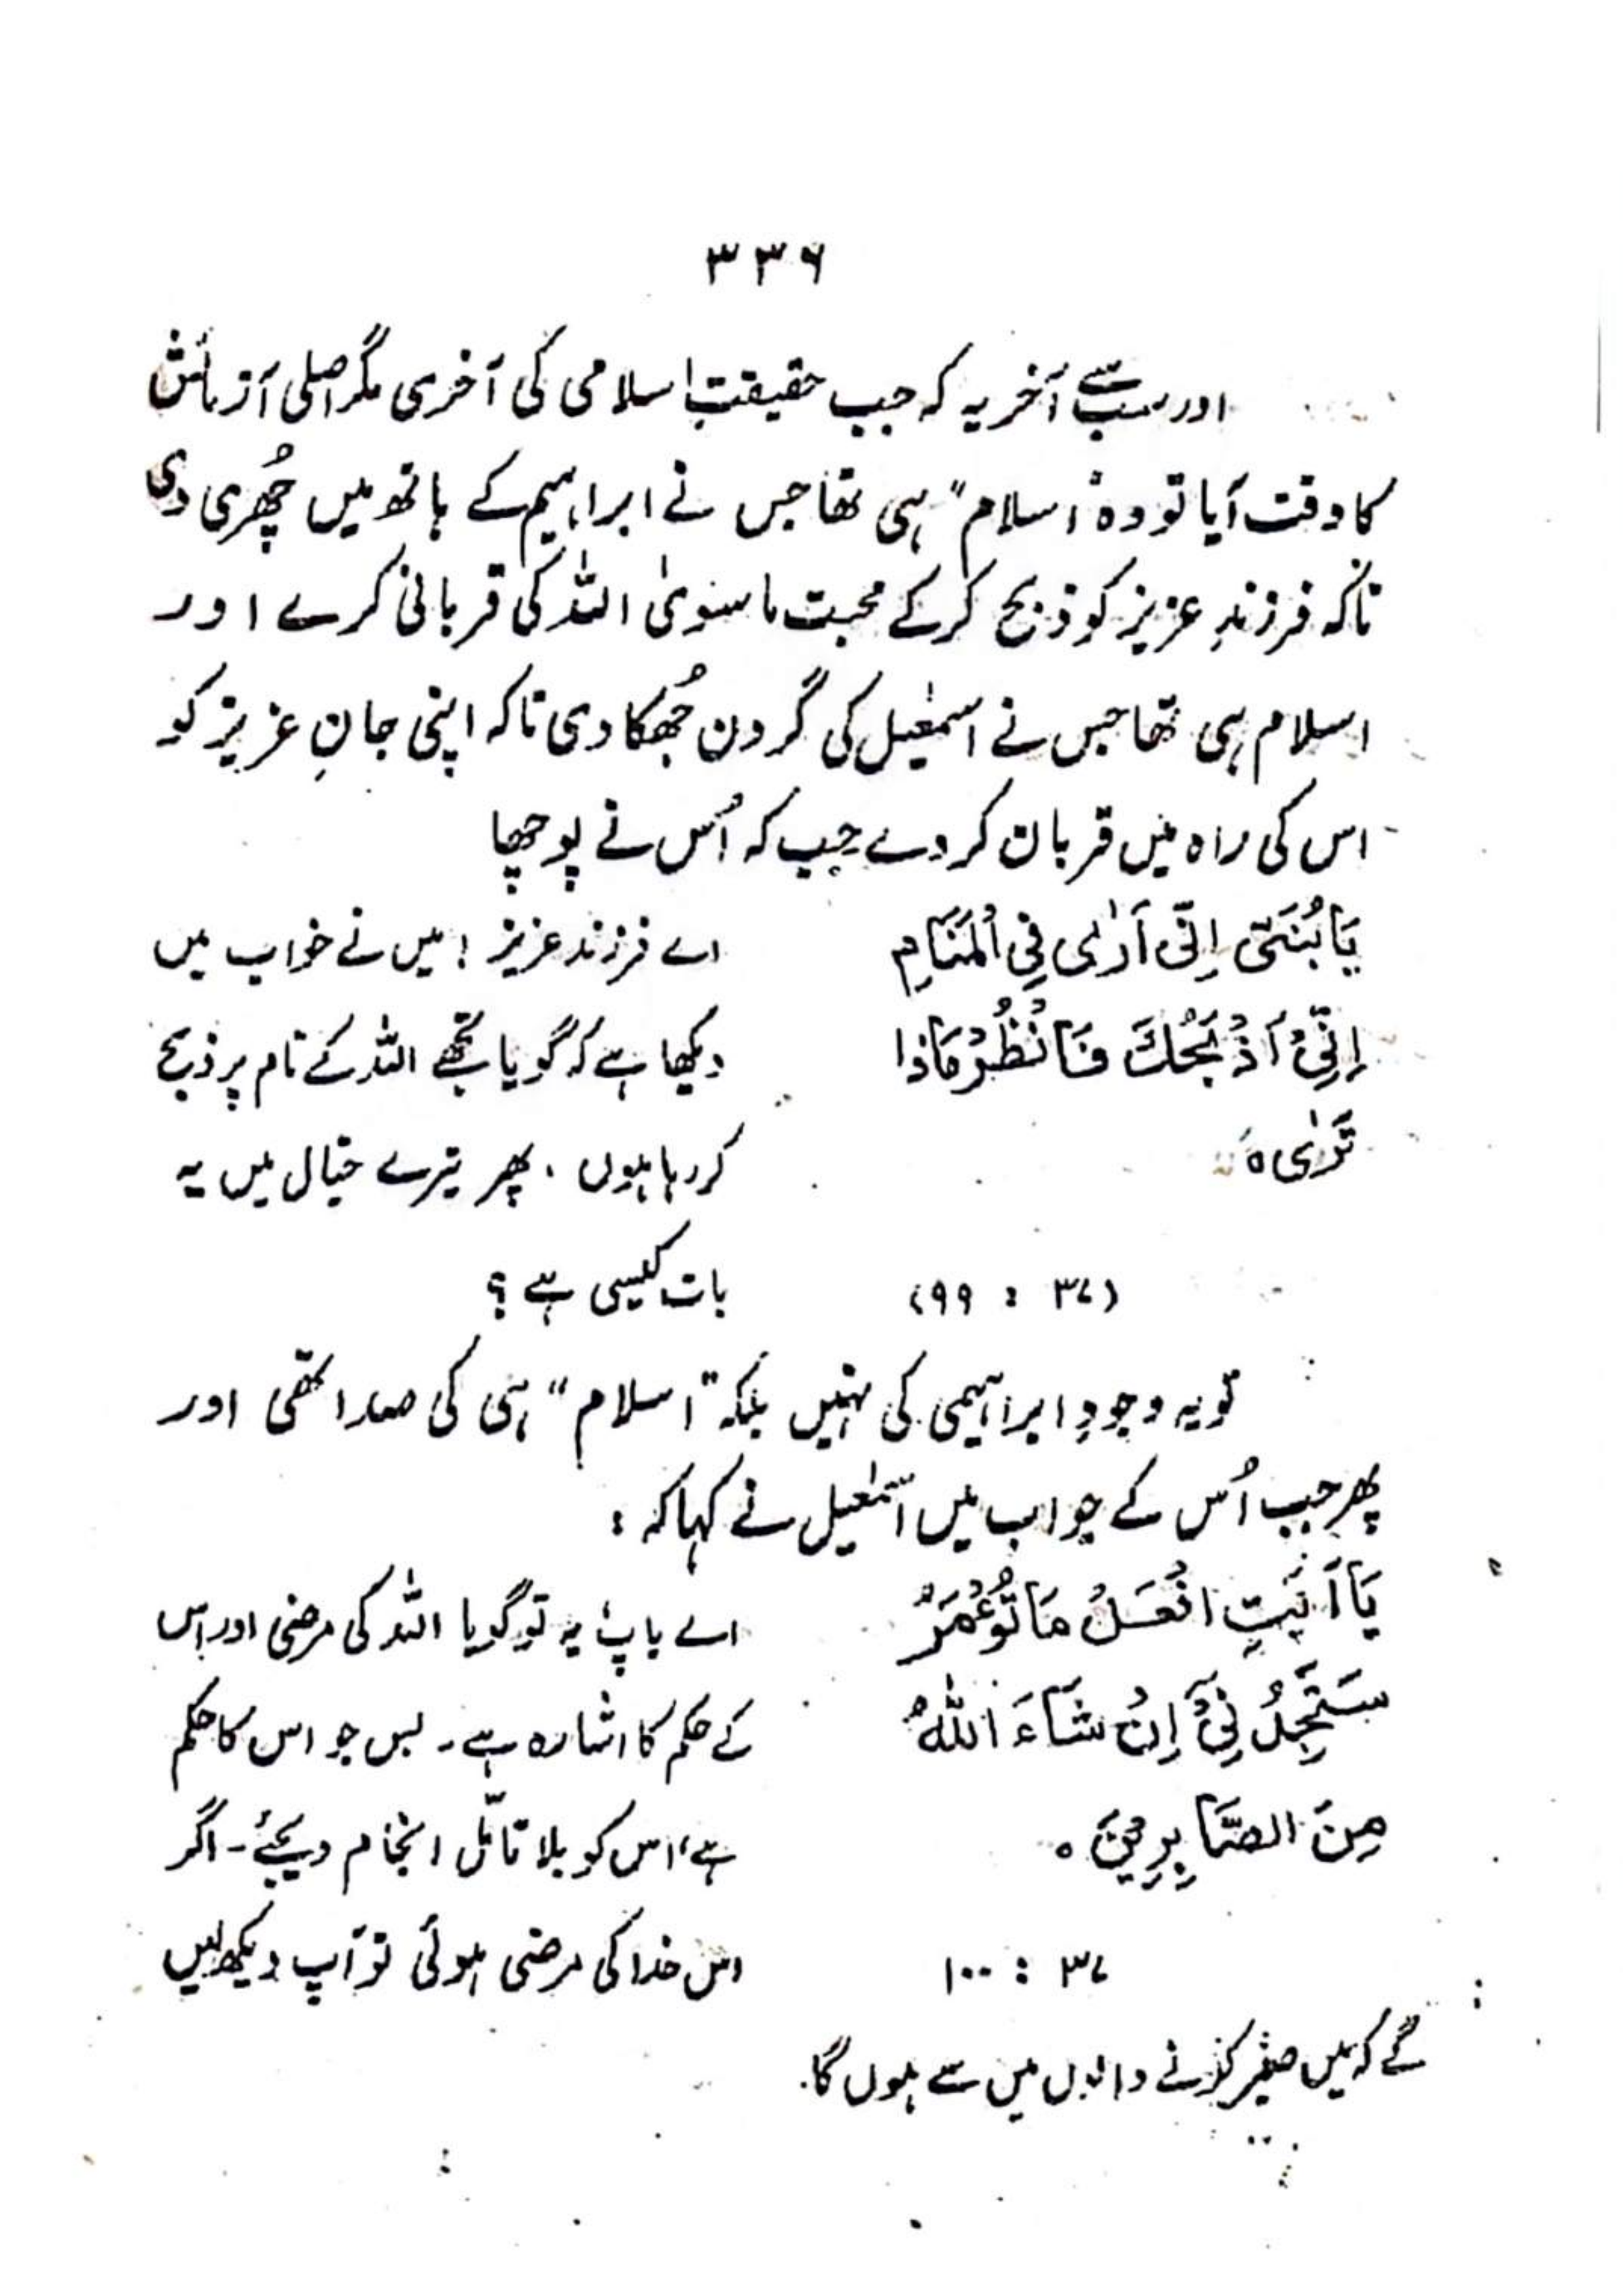 ۳۳۶
اور سب سے آخر یہ کہ جب حقیقتِ اسلامی کی آخری مگر اصلی آزمائش
کا وقت آیا تو وہ "اسلام" ہی تھا جس نے ابراہیم کے ہاتھ میں چُھری دی
تاکہ فرزندِ عزیز کو ذبح کرکے محبت ماسویٰ اللہ کی قربانی کرے اور
اسلام ہی تھا جس نے اسمٰعیل کی گردن جُھکا دی تاکہ اپنی جانِ عزیز کو
اس کی راہ میں قربان کر دے جب کہ اُس نے پوچھا
يَا بُنَىَّ اِنِّى اَرٰى فِى الْمَنَامِ اے فرزند عزیز ! میں نے خواب میں
اِنِّىْ اَذْبَحُكَ فَانْظُرْ مَاذَا دیکھا ہے کہ گویا تجھے اللہ کے نام پر ذبح
تَرٰى ہ کر رہا ہوں . پھر تیرے خیال میں یہ
(۳۷ : ۹۹) بات کیسی ہے ؟
تو یہ وجودِ ابراہیمی کی نہیں بلکہ "اسلام" ہی کی صدا تھی اور
پھر جب اُس کے جواب میں اسمٰعیل نے کہا کہ :
يَا اَبَتِ افْعَلْ مَا تُؤْمَرُ اے باپ! یہ تو گویا اللہ کی مرضی اور اس
سَتَجِدُنِىْ اِنْ شَآءَ اللّٰهُ کے حکم کا اشارہ ہے۔ بس جو اس کا حکم
مِنَ الصَّابِرِيْنَ ہ ہے، اس کو بلا تامّل انجام دیجئے۔ اگر
۳۷ : ۱۰۰ اس خدا کی مرضی ہوئی تو آپ دیکھ لیں
گے کہ میں صبر کرنے والوں میں سے ہوں گا.